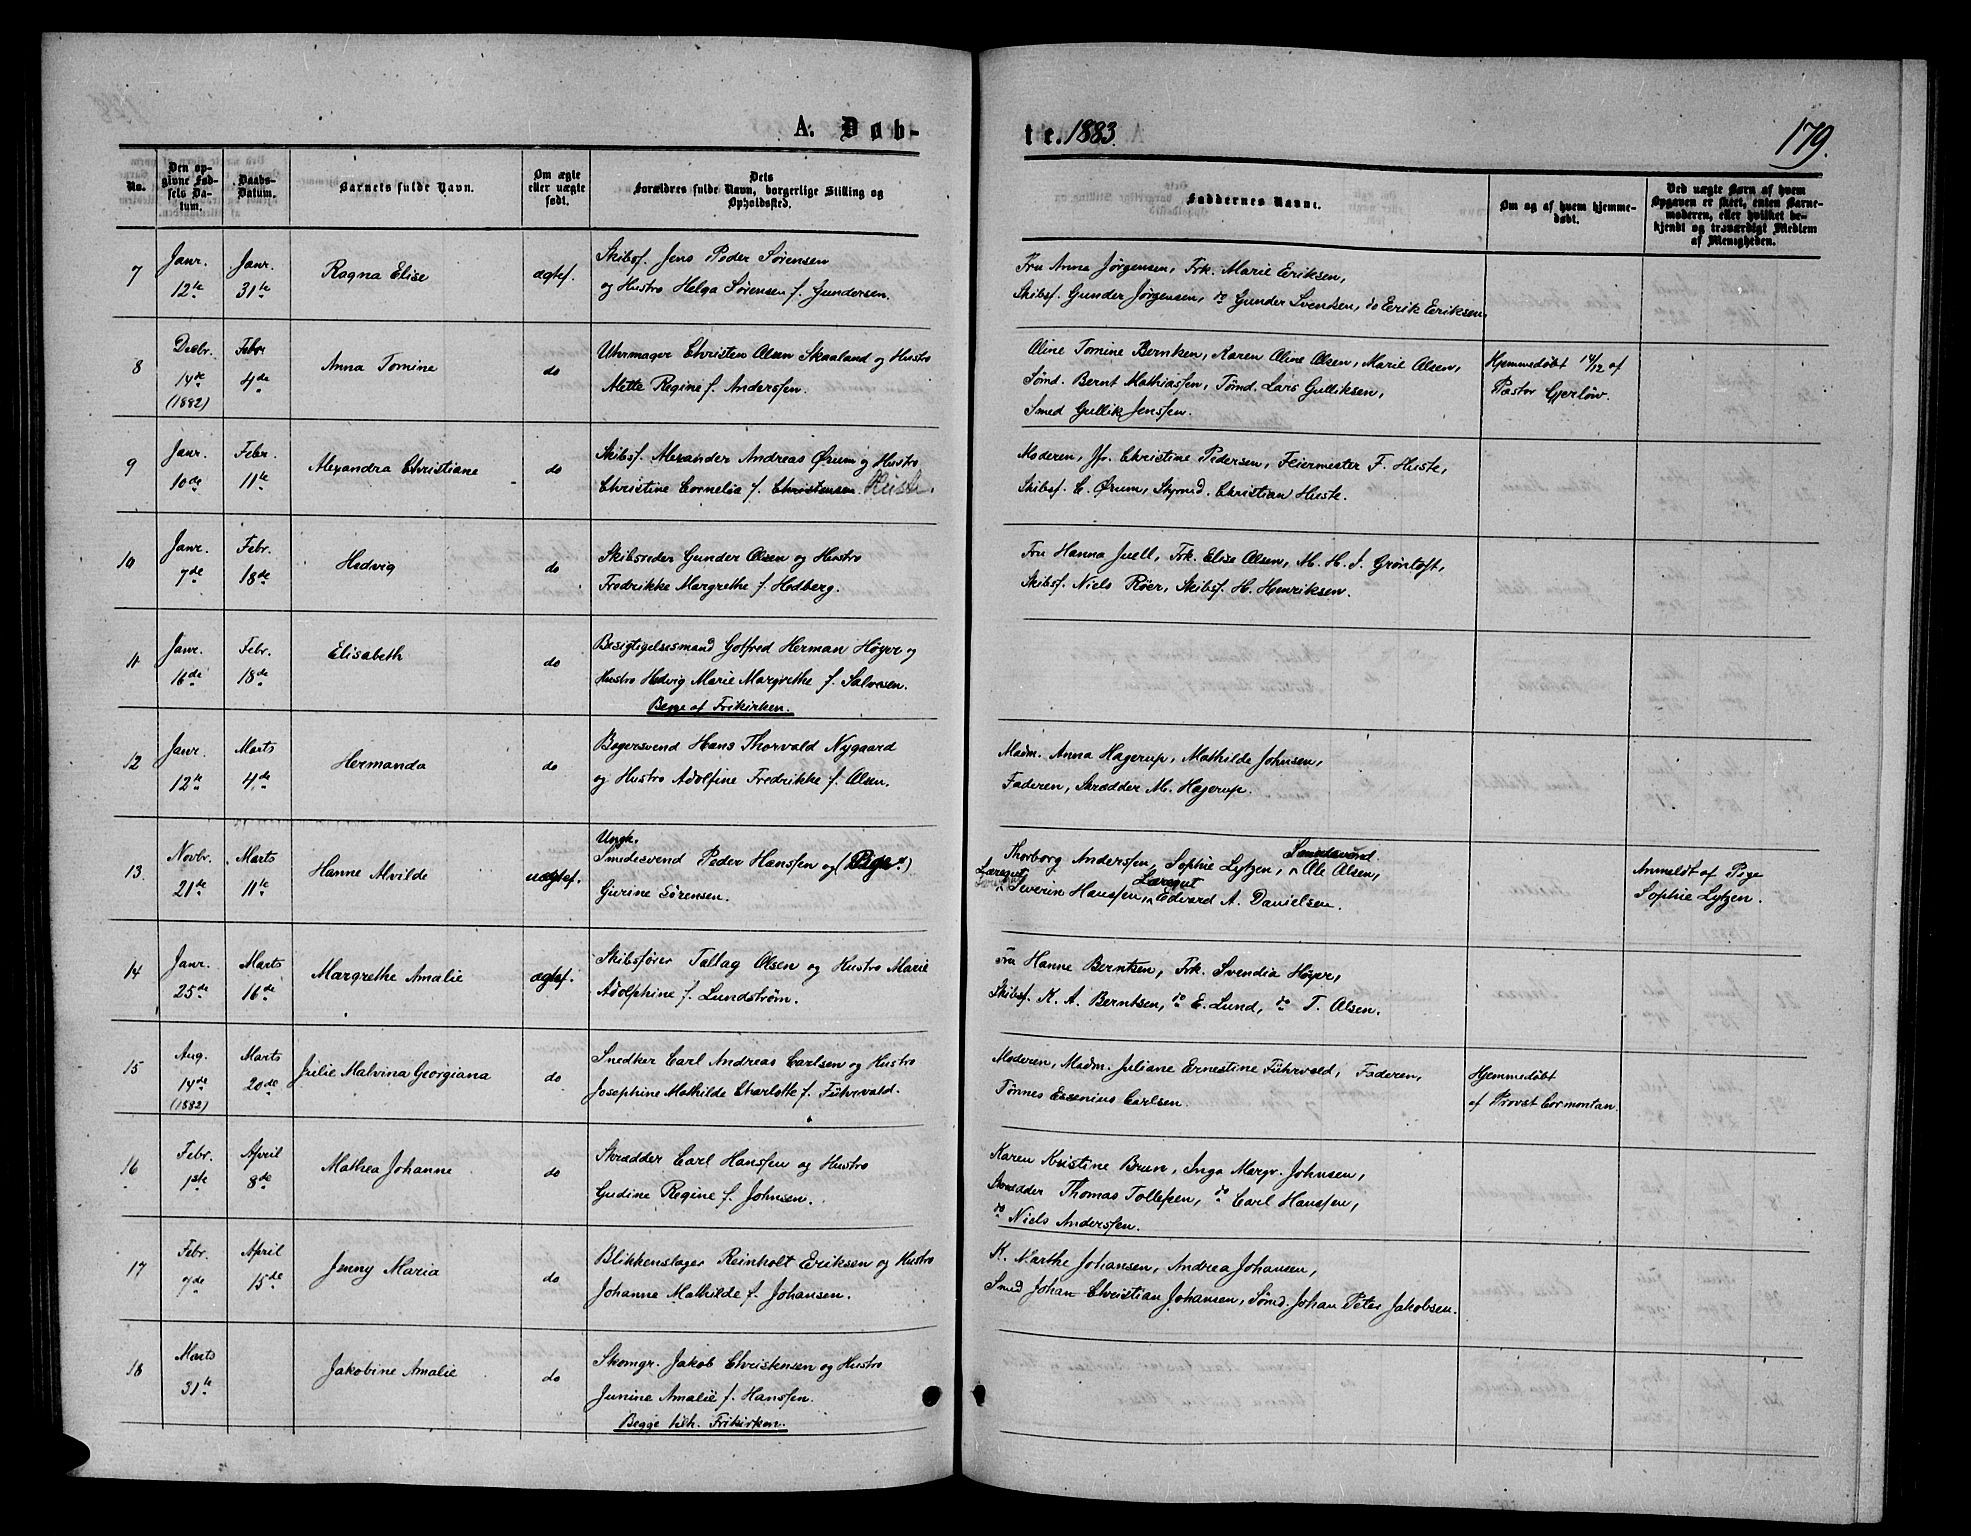 A. Døb-
te. 1883.
179.
No.
Den op-
givne Fød-
sels Da-
tum.
Daabs-
Datum.
Barnets fulde Navn.
Om ægte
eller uægte
født.
Dets
Forældres fulde Navn, borgerlige Stilling og
Opholdssted.
Faddernes Navne.
Om og af hvem hjemme-
døbt.
Ved uægte Børn af hvem
Opgaven er skeet, enten Barne-
moderen, eller hvilket be-
kjendt og troværdigt Medlem
af Menigheden.
7
Janr.
12te
Janr.
31te
Ragna Elise
ægtef.
Skibsf. Jens Peder Sørensen
og Hustro Helga Sørensen f. Gundersen.
Fru Anna Jørgensen, Frk. Marie Eriksen,
Skibsf. Gunder Jørgensen, do Gunder Svendsen, do Eerik Eeriksen.
8
Decbr.
14de
(1882)
Febr
4de
Anna Tomine
do
Uhrmager Christen Olsen Skaaland og Hustro
Alette Regine f. Anderssen.
Oline Tomine Berntsen, Karen Oline Olsen, Marie Olsen,
Sømd. Bernt Mathiassen, Tømd. Lars Gulliksen,
Smed Gullik Jenssen.
Hjemmedøbt 14/12 af
Pastor Gjerløw.
9
Janr.
10de
Febr.
11te
Alexandra Christiane
do
Skibsf. Alexander Andreas Ørum og Hustro
Christine Cornelia f. Christensen. Huste.
Moderen, Jfr. Christine Pedersen, Feiermester F. Huste,
Skibsf. C. Ørum, Styrmd. Christian Huste.
10
Janr.
7de
Febr.
18de
Hedvig
do
Skibsreder Gunder Olsen og Hustro
Fredrikke Margrethe f. Hedberg.
Fru Hanna Juell, Frk. Elise Olsen, M. H. S. Grønloft,
Skibsf. Niels Røer, Skibsf. H. Henriksen.
11
Janr.
16de
Febr.
18de
Elisabeth
do
Besigtigelsesmand Gotfred Herman Höyer og
Hustro Hedvig Marie Margrethe f. Salvesen.
Begge af Frikirken.
12
Janr.
12te
Marts
4de
Hermanda
do
Bagersvend Hans Thorvald Nygaard
og Hustro Adolfine Fredrikke f. Olsen.
Madm. Anna Hagerup, Mathilde Johnsen,
Faderen, Skrædder M. Hagerup.
13.
Novbr.
21de
Marts
11te
Hanne Alvilde
uægtef.
Ungk.
Smedesvend Peder Hanssen og (Pige)
Gurine Sörensen.
Smedesvend
Thorborg Anderssen, Sophie Lytzen, Ole Olsen,
Læregut
Læregut
Severin Hanssen, Edvard A. Danielsen.
Anmeldt af Pige
Sophie Lytzen.
14
Janr.
25de
Marts
16de
Margrethe Amalie
ægtef.
Skibsfører Tallag Olsen og Hustro Marie
Adolphine f. Lundström.
Fru Hanne Berntsen, Frk. Svendia Høyer,
Skibsf. K. A. Berntsen, do E. Lund, do T. Olsen.
15
Aug.
14de
(1882)
Marts
20de
Julie Malvina Georgiana
do
Snedker Carl Andreas Carlsen og Hustro
Josephine Mathilde Charlotte f. Führvald.
Moderen, Madm. Juliane Ernestine Führvald, Faderen,
Tönnes Essenius Carlsen.
Hjemmedøbt
af Provst Cormontan.
16
Febr.
1ste
April
8de
Mathea Johanne
do
Skrædder Carl Hanssen og Hustro
Gudine Regine f. Johnsen.
Karen Kristine Brun, Inga Margr. Johnsen,
Skrædder Thomas Tollefsen, do Carl Hanssen,
do Niels Anderssen.
17
Febr.
7de
April
15de
Jenny Maria
do
Blikkenslager Reinholt Eriksen og Hustro
Johanna Mathilde f. Johansen.
K. Marthe Johansen, Andrea Johansen,
Smed Johan Christian Johansen, Sømd. Johan Peter Jakobsen.
18
Marts
31te
Jakobine Amalie
do
Skomgr. Jakob Christensen og Hustro
Junine Amalie f. Hanssen.
Begge tilh. Frikirken.